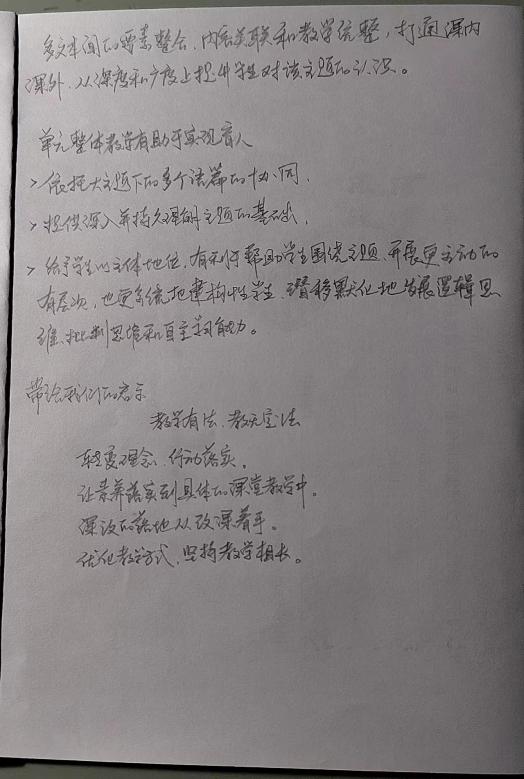 多文本间的要素整合,内容关联和教学统整,打通课内
课外,从深度和广度上提升学生对该主题的认识。
单元整体教学有助于实现育人
>依托大主题下的多个语篇的协同,
>提供深入并持久理解主题的基础,
>给予学生以主体地位,有利于帮助学生围绕主题,开展更主动的
有层次,也更系统地建构性学,潜移默化地发展逻辑思
维,批判思维和自主构能力。
带给我们的启示
教学有法,教无定法
转变理念,行动落实。
让素养落实到具体的课堂教学中。
深议的落地从改课着手。
优化教学方式,坚持教学相长。